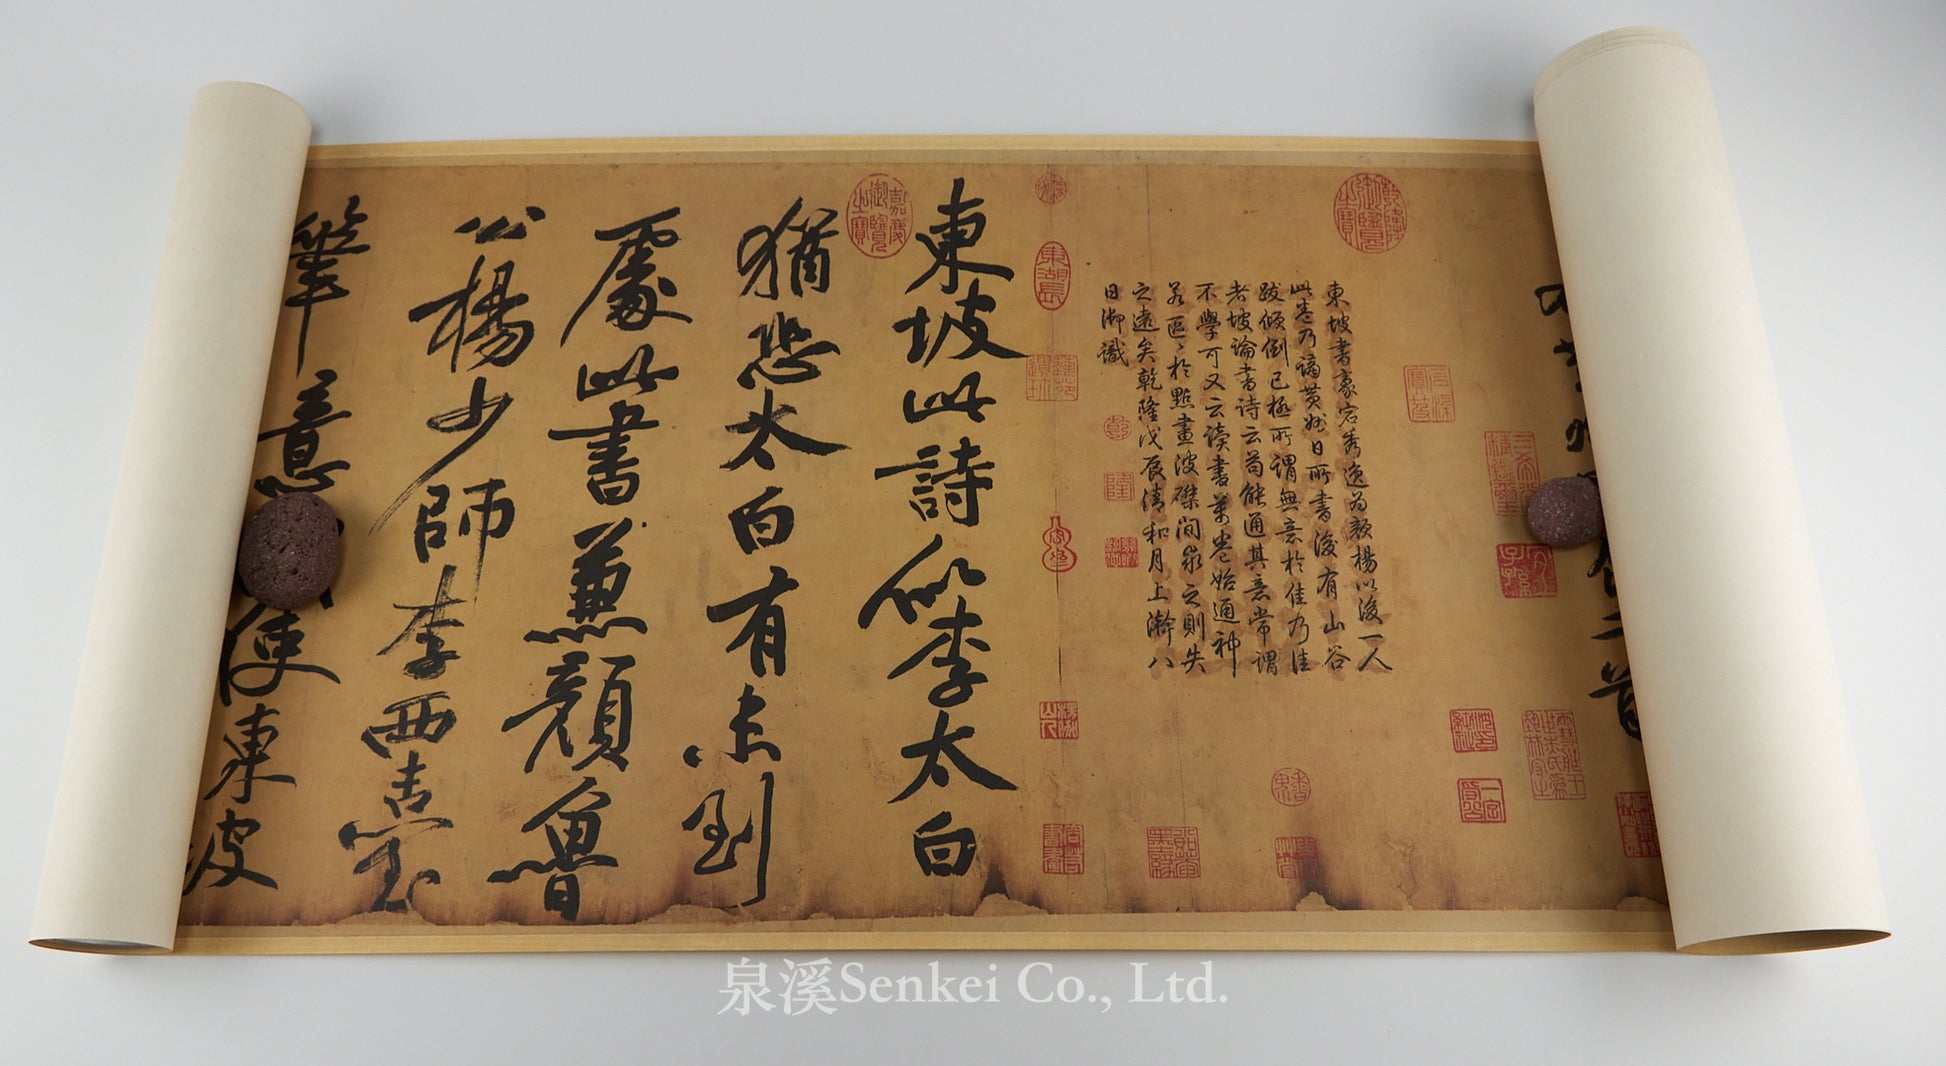 二首
乾隆御覽之寶
東坡書豪宕秀逸為顏楊以後一人
此卷乃謫黃州日所書後有山谷
跋傾倒已極所謂無意於佳乃佳
者坡論書詩云苟能通其意常謂
不學可又云读書萬卷始通神
若區々於點畫波磔間求之則失
之遠矣乾隆戊辰清和月上澣八
日御識
乾
隆
嘉慶御覽之寶
東坡此詩似李太白
猶恐太白有未到
處此書兼顏魯
公楊少師李西臺
筆意使東坡
泉溪Senkei Co., Ltd.